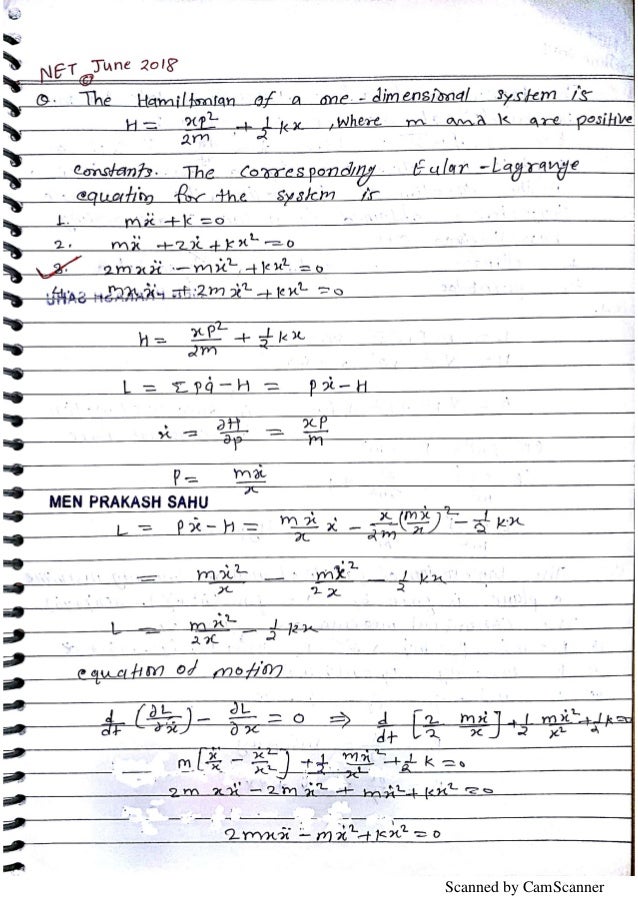 NET June 2018
Q. The Hamiltonian of a one-dimensional system is
H = xp²/2m + 1/2 kx , where m and k are positive
constants. The corresponding Eular-Lagrange
equation for the system is
1. mẍ + k = 0
2. mẍ + 2ẋ + kx² = 0
3. 2mxẍ - mẋ² + kx² = 0
4. mxẍ + 2mẋ² + kx² = 0
H = xp²/2m + 1/2 kx
L = Σpq̇ - H = pẋ - H
ẋ = ∂H/∂p = xp/m
P = mẋ/x
MEN PRAKASH SAHU
L = pẋ - H = mẋ/x ẋ - x/2m (mẋ/x)² - 1/2 kx
= mẋ²/x - mẋ²/2x - 1/2 kx
L = mẋ²/2x - 1/2 kx
equation of motion
d/dt (∂L/∂ẋ) - ∂L/∂x = 0 ⇒ d/dt [2/2 mẋ/x] + 1/2 mẋ²/x² + 1/2 k = 0
m[ẍ/x - ẋ²/x²] + 1/2 mẋ²/x² + 1/2 k = 0
2m xẍ - 2mẋ² + mẋ² + kx² = 0
2mxẍ - mẋ² + kx² = 0
Scanned by CamScanner